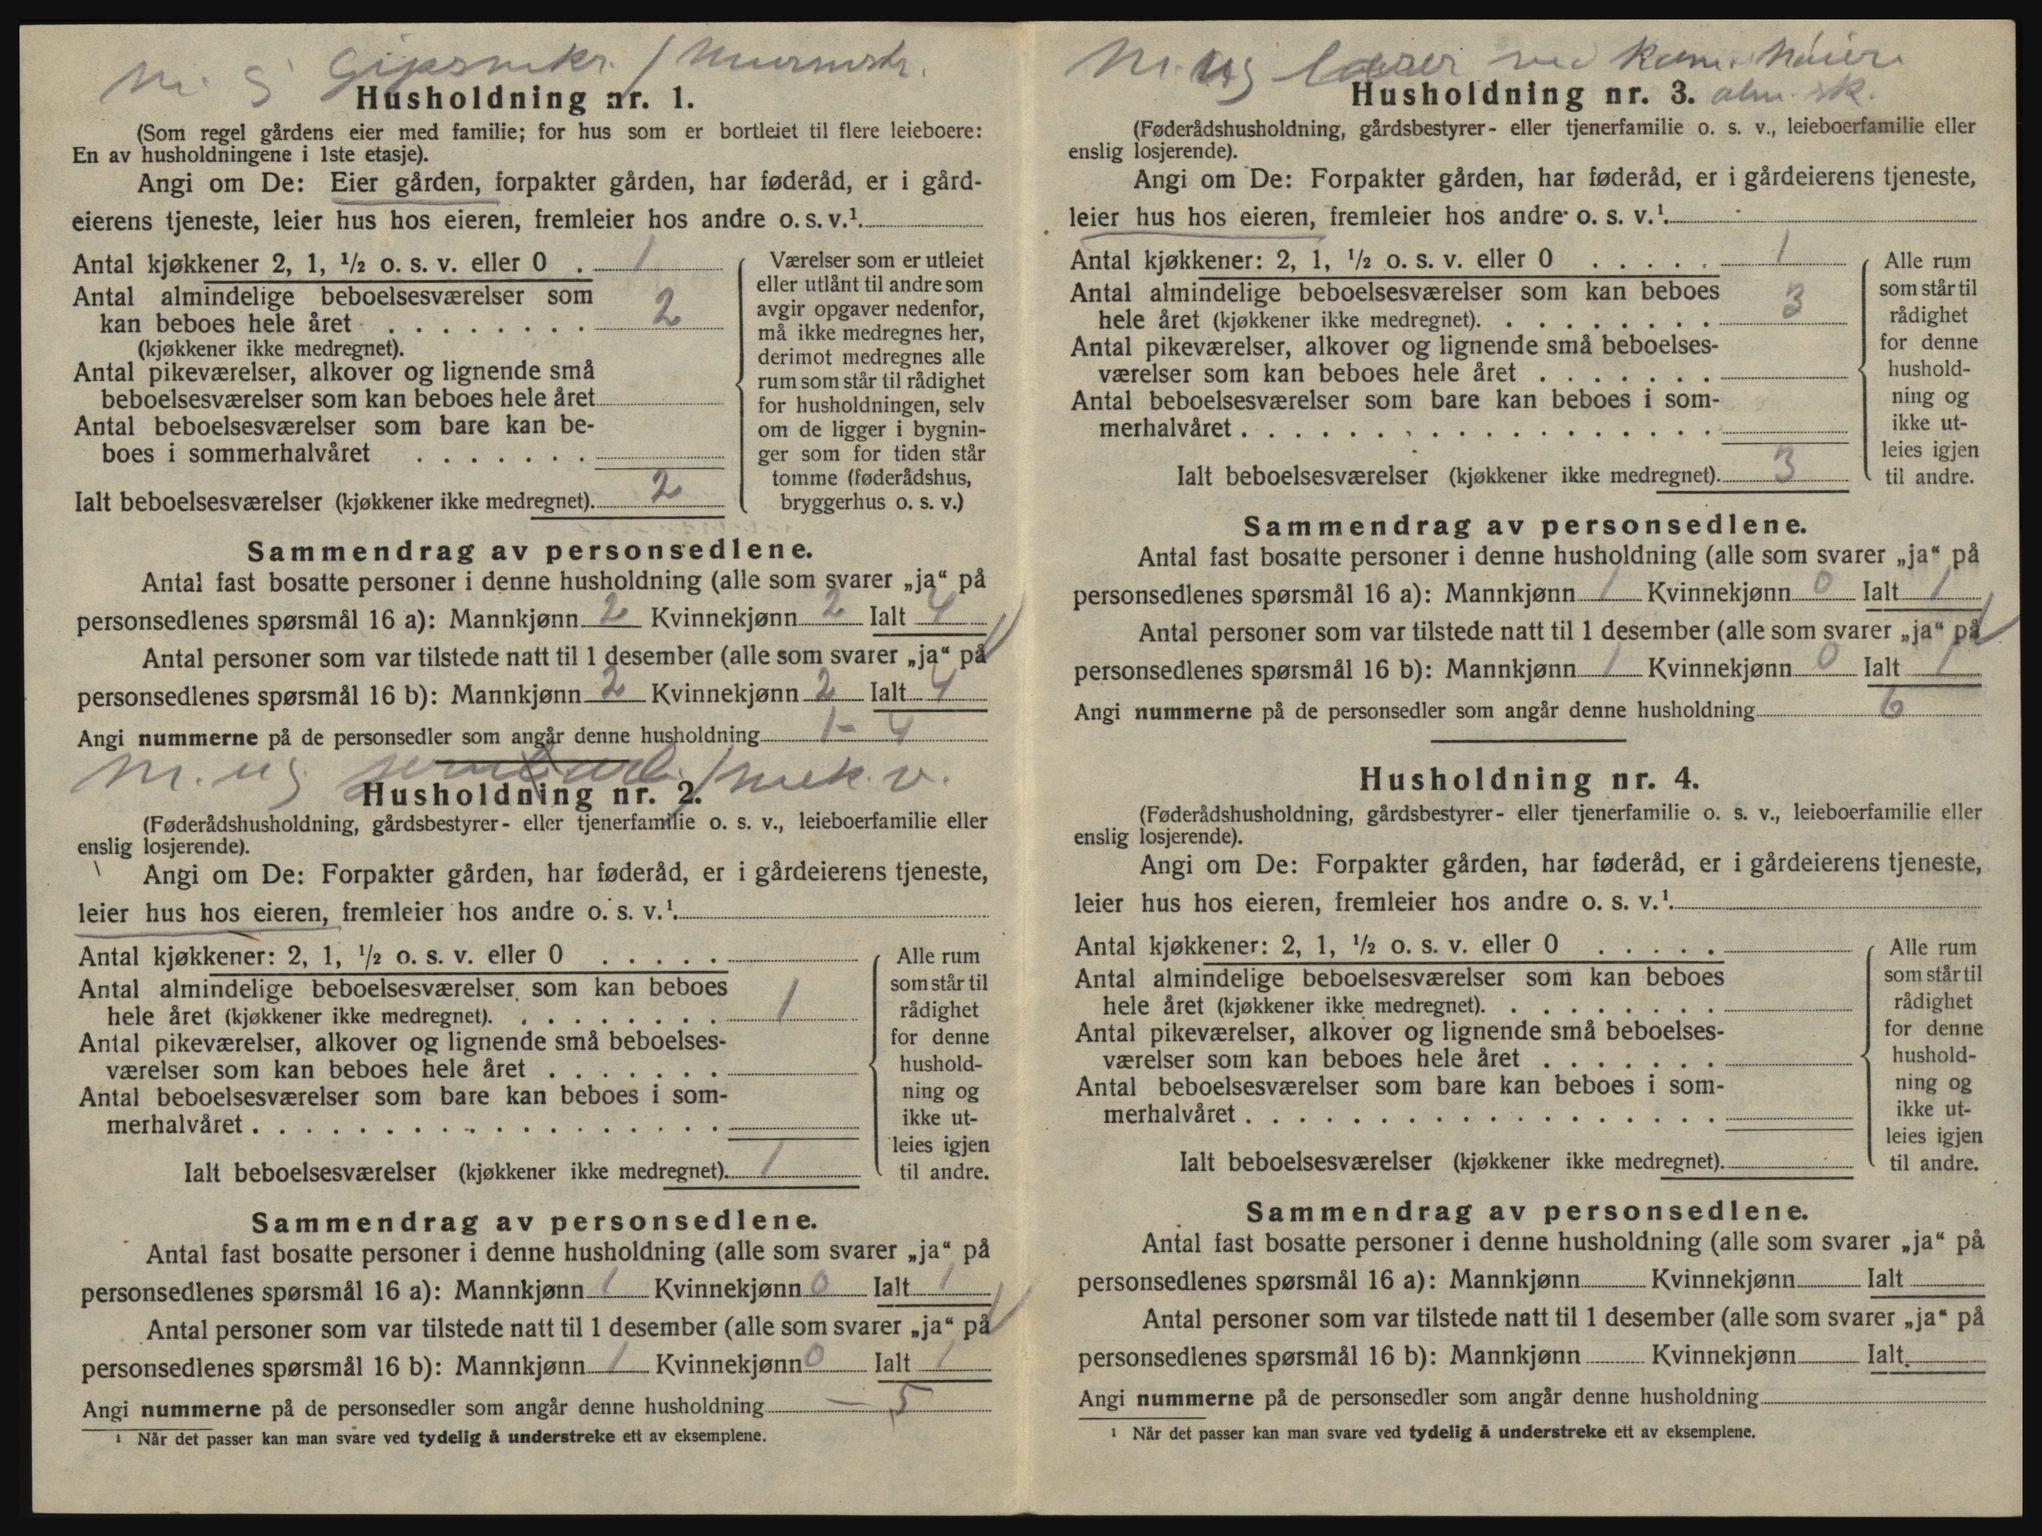 M. G Gipsmkr. / Murmstr.
Husholdning nr. 1.
(Som regel gårdens eier med familie; for hus som er bortleiet til flere leieboere:
En av husholdningene i 1ste etasje).
Angi om De: Eier gården, forpakter gården, har føderåd, er i gård-
eierens tjeneste, leier hus hos eieren, fremleier hos andre o. s. v.¹.
Antal kjøkkener 2, 1, ½ o. s. v. eller 0 . 1
Antal almindelige beboelsesværelser som
kan beboes hele året . . . . . . . . 2
(kjøkkener ikke medregnet).
Antal pikeværelser, alkover og lignende små
beboelsesværelser som kan beboes hele året
Antal beboelsesværelser som bare kan be-
boes i sommerhalvåret . . . . . . .
Ialt beboelsesværelser (kjøkkener ikke medregnet). 2
Værelser som er utleiet
eller utlånt til andre som
avgir opgaver nedenfor,
må ikke medregnes her,
derimot medregnes alle
rum som står til rådighet
for husholdningen, selv
om de ligger i bygnin-
ger som for tiden står
tomme (føderådshus,
bryggerhus o. s. v.)
Sammendrag av personsedlene.
Antal fast bosatte personer i denne husholdning (alle som svarer „ja“ på
personsedlenes spørsmål 16 a): Mannkjønn 2 Kvinnekjønn 2 Ialt 4
Antal personer som var tilstede natt til 1 desember (alle som svarer „ja“ på
personsedlenes spørsmål 16 b): Mannkjønn 2 Kvinnekjønn 2 Ialt 4
Angi nummerne på de personsedler som angår denne husholdning 1-4
M. ug. / mek. v.
Husholdning nr. 2.
(Føderådshusholdning, gårdsbestyrer- eller tjenerfamilie o. s. v., leieboerfamilie eller
enslig losjerende).
Angi om De: Forpakter gården, har føderåd, er i gårdeierens tjeneste,
leier hus hos eieren, fremleier hos andre o. s. v.¹.
Antal kjøkkener: 2, 1, ½ o. s. v. eller 0 . . . . .
Antal almindelige beboelsesværelser som kan beboes
hele året (kjøkkener ikke medregnet). . . . . . . . . 1
Antal pikeværelser, alkover og lignende små beboelses-
værelser som kan beboes hele året . . . . . . .
Antal beboelsesværelser som bare kan beboes i som-
merhalvåret . . . . . . . . . . . . . . . . . .
Ialt beboelsesværelser (kjøkkener ikke medregnet). 1
Alle rum
som står til
rådighet
for denne
hushold-
ning og
ikke ut-
leies igjen
til andre.
Sammendrag av personsedlene.
Antal fast bosatte personer i denne husholdning (alle som svarer „ja“ på
personsedlenes spørsmål 16 a): Mannkjønn 1 Kvinnekjønn 0 Ialt 1
Antal personer som var tilstede natt til 1 desember (alle som svarer „ja“ på
personsedlenes spørsmål 16 b): Mannkjønn 1 Kvinnekjønn 0 Ialt 1
Angi nummerne på de personsedler som angår denne husholdning — 5
¹ Når det passer kan man svare ved tydelig å understreke ett av eksemplene.
M. ug lærer ved Kom. høiere
alm. sk.
Husholdning nr. 3.
(Føderådshusholdning, gårdsbestyrer- eller tjenerfamilie o. s. v., leieboerfamilie eller
enslig losjerende).
Angi om De: Forpakter gården, har føderåd, er i gårdeierens tjeneste,
leier hus hos eieren, fremleier hos andre o. s. v.¹.
Antal kjøkkener: 2, 1, ½ o. s. v. eller 0 . . . . . 1
Antal almindelige beboelsesværelser som kan beboes
hele året (kjøkkener ikke medregnet). . . . . . . . . 3
Antal pikeværelser, alkover og lignende små beboelses-
værelser som kan beboes hele året . . . . . . .
Antal beboelsesværelser som bare kan beboes i som-
merhalvåret . . . . . . . . . . . . . . . . . .
Ialt beboelsesværelser (kjøkkener ikke medregnet). 3
Alle rum
som står til
rådighet
for denne
hushold-
ning og
ikke ut-
leies igjen
til andre.
Sammendrag av personsedlene.
Antal fast bosatte personer i denne husholdning (alle som svarer „ja“ på
personsedlenes spørsmål 16 a): Mannkjønn 1 Kvinnekjønn 0 Ialt 1
Antal personer som var tilstede natt til 1 desember (alle som svarer „ja“ på
personsedlenes spørsmål 16 b): Mannkjønn 1 Kvinnekjønn 0 Ialt 1
Angi nummerne på de personsedler som angår denne husholdning 6
Husholdning nr. 4.
(Føderådshusholdning, gårdsbestyrer- eller tjenerfamilie o. s. v., leieboerfamilie eller
enslig losjerende).
Angi om De: Forpakter gården, har føderåd, er i gårdeierens tjeneste,
leier hus hos eieren, fremleier hos andre o. s. v.¹.
Antal kjøkkener: 2, 1, ½ o. s. v. eller 0 . . . . .
Antal almindelige beboelsesværelser som kan beboes
hele året (kjøkkener ikke medregnet). . . . . . . . .
Antal pikeværelser, alkover og lignende små beboelses-
værelser som kan beboes hele året . . . . . . .
Antal beboelsesværelser som bare kan beboes i som-
merhalvåret . . . . . . . . . . . . . . . . . .
Ialt beboelsesværelser (kjøkkener ikke medregnet).
Alle rum
som står til
rådighet
for denne
hushold-
ning og
ikke ut-
leies igjen
til andre.
Sammendrag av personsedlene.
Antal fast bosatte personer i denne husholdning (alle som svarer „ja“ på
personsedlenes spørsmål 16 a): Mannkjønn Kvinnekjønn Ialt
Antal personer som var tilstede natt til 1 desember (alle som svarer „ja“ på
personsedlenes spørsmål 16 b): Mannkjønn Kvinnekjønn Ialt
Angi nummerne på de personsedler som angår denne husholdning
¹ Når det passer kan man svare ved tydelig å understreke ett av eksemplene.